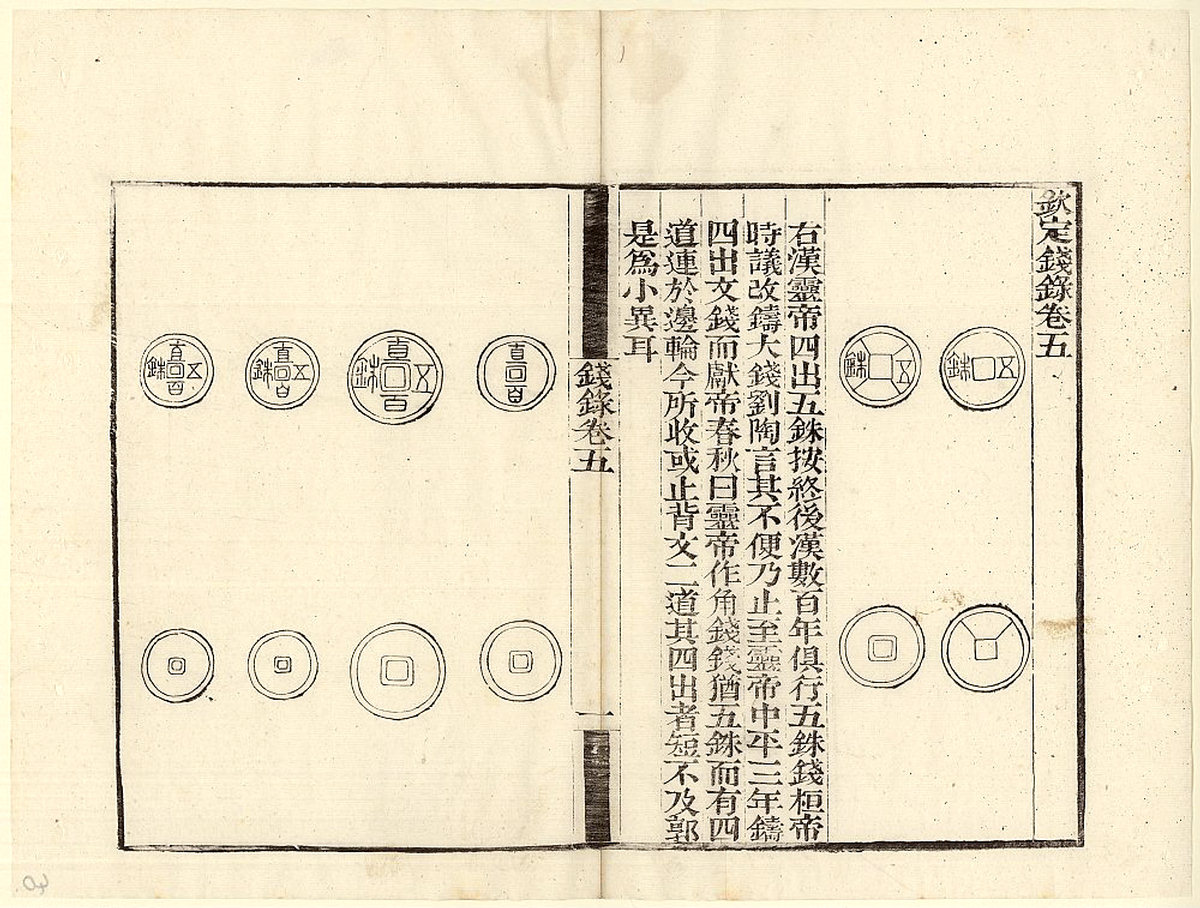 欽定錢錄卷五
五銖
五銖
右漢靈帝四出五銖按終後漢數百年俱行五銖錢桓帝
時議改鑄大錢劉陶言其不便乃止至靈帝中平三年鑄
四出文錢而獻帝春秋曰靈帝作角錢錢猶五銖而有四
道連於邊輪今所收或止背文二道其四出者短不及郭
是爲小異耳
錢錄卷五
一
直百
直百五銖
直百五銖
直百五銖